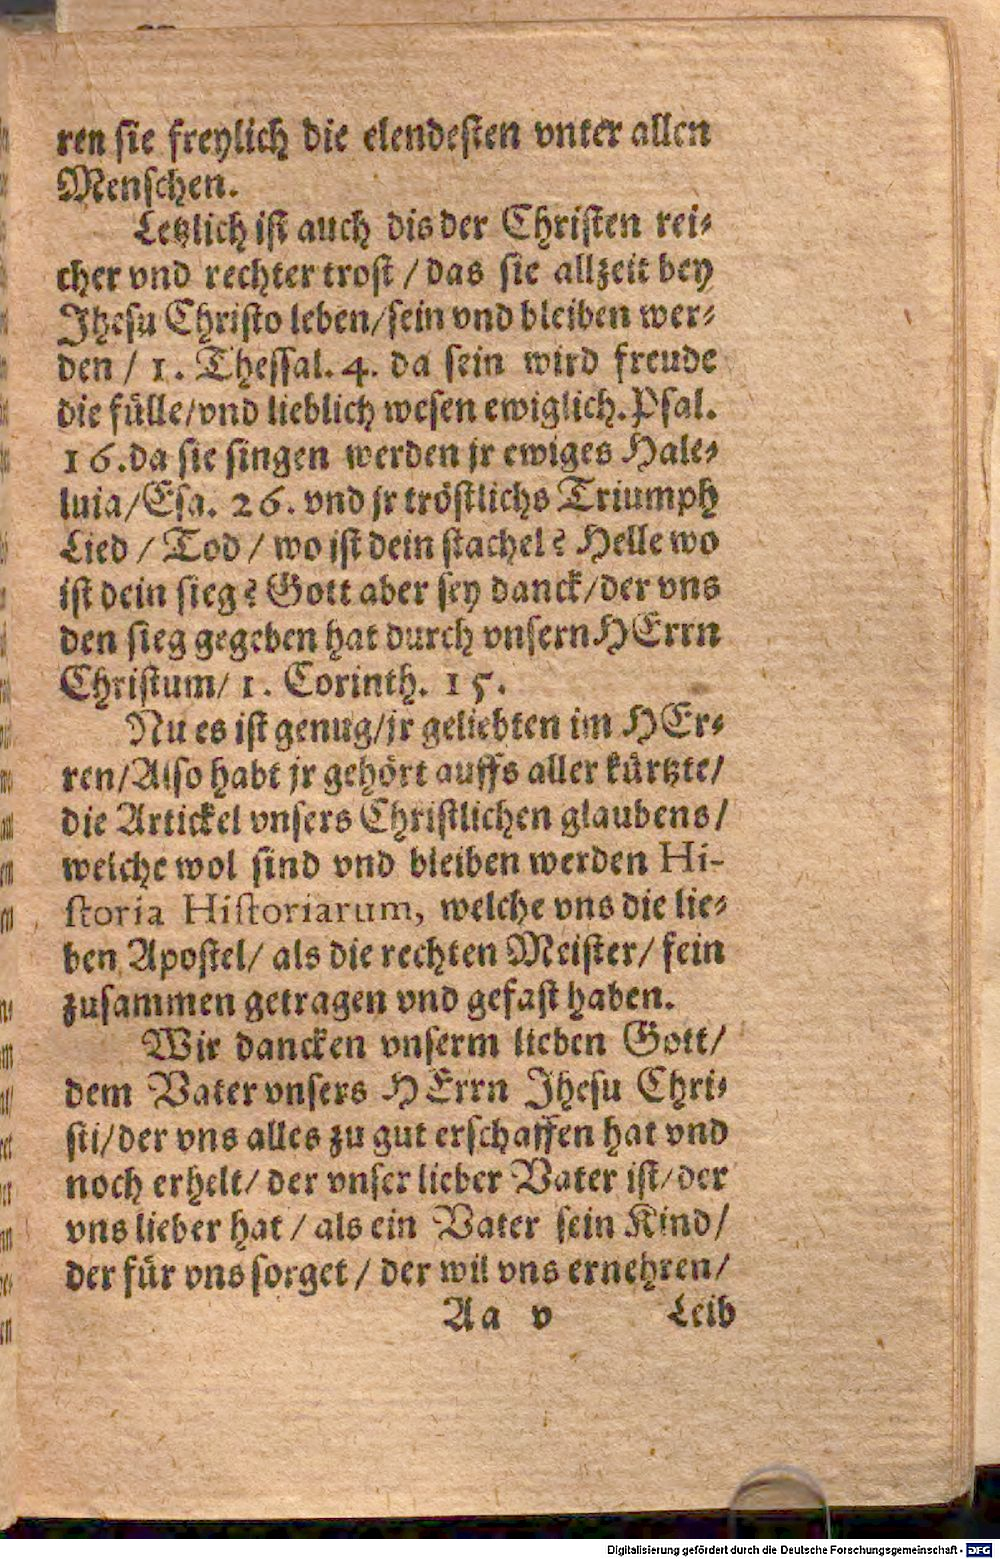 ren sie freylich die elendesten vnter allen
Menschen.
Letzlich ist auch dis der Christen rei-
cher vnd rechter trost / das sie allzeit bey
Jhesu Christo leben/sein vnd bleiben wer-
den / 1. Thessal. 4. da sein wird freude
die fülle/vnd lieblich wesen ewiglich. Psal.
16. da sie singen werden jr ewiges Hale-
luia/Esa. 26. vnd jr tröstlichs Triumph
Lied / Tod / wo ist dein stachel? Helle wo
ist dein sieg? Gott aber sey danck/der vns
den sieg gegeben hat durch vnsern HErrn
Christum/ 1. Corinth. 15.
Nu es ist genug/jr geliebten im HEr-
ren/Also habt jr gehört auffs aller kürtzte/
die Artickel vnsers Christlichen glaubens/
welche wol sind vnd bleiben werden Hi-
storia Historiarum, welche vns die lie-
ben Apostel/ als die rechten Meister/ fein
zusammen getragen vnd gefast haben.
Wir dancken vnserm lieben Gott/
dem Vater vnsers HErrn Jhesu Chri-
sti/der vns alles zu gut erschaffen hat vnd
noch erhelt/ der vnser lieber Vater ist/der
vns lieber hat / als ein Vater sein Kind/
der für vns sorget / der wil vns ernehren/
Aa v Leib
Digitalisierung gefördert durch die Deutsche Forschungsgemeinschaft - DFG